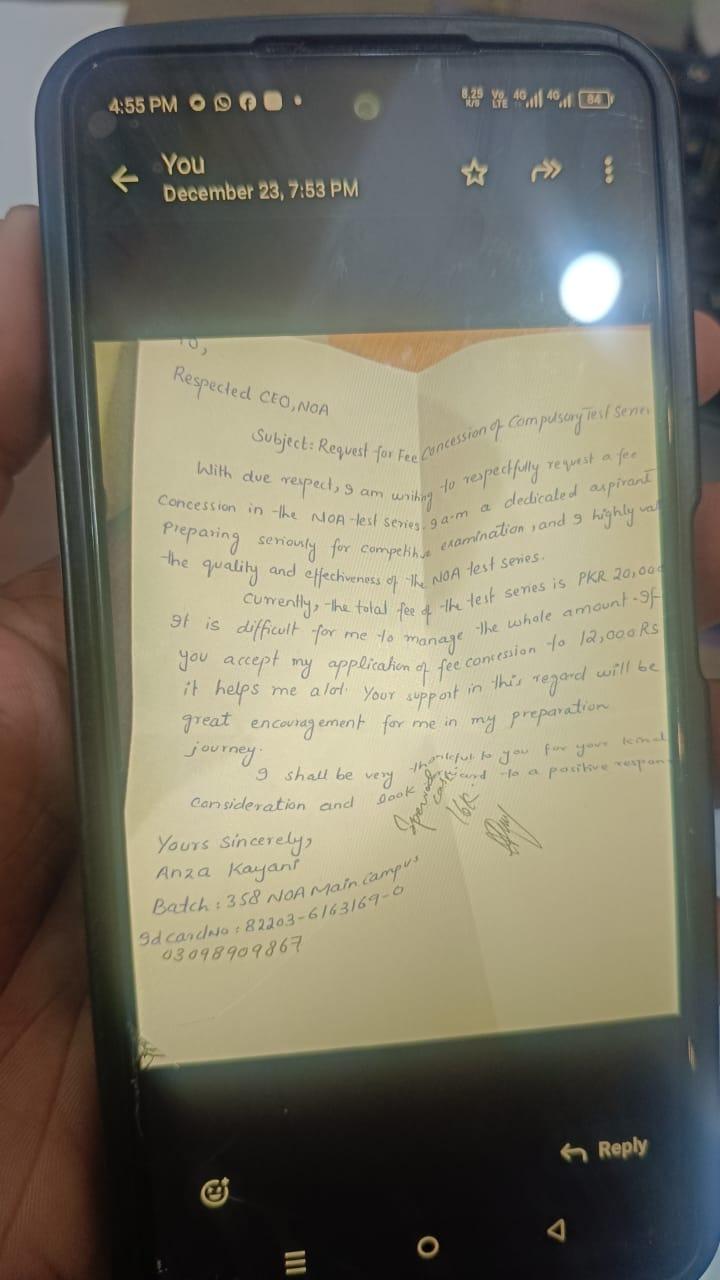 4:55 PM
8.25 K/S Vo LTE 4G 4G 84
You
December 23, 7:53 PM
To,
Respected CEO, NOA
Subject: Request for Fee Concession of Compulsory Test Series
With due respect, I am writing to respectfully request a fee
concession in the NOA test series. I a.m a dedicated aspirant
Preparing seriously for competitive examination, and I highly val
the quality and effectiveness of the NOA test series.
Currently, the total fee of the test series is PKR 20,000
It is difficult for me to manage the whole amount. If
you accept my application of fee concession to 12,000 RS
it helps me alot. Your support in this regard will be
great encouragement for me in my preparation
journey.
I shall be very thankful to you for your kind
Consideration and look to a positive respon
Special
case
16k
Yours Sincerely,
Anza Kayani
Batch: 358 NOA Main campus
Id card No: 82203-6163169-0
03098909867
Reply